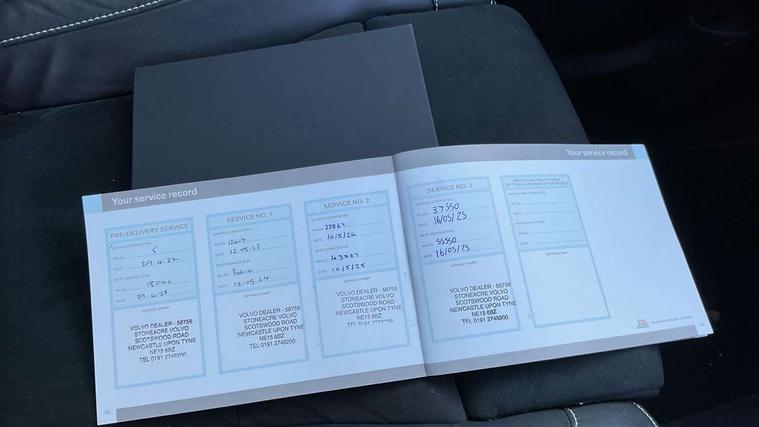 Your service record
PRE-DELIVERY SERVICE
SERVICE COMPLETED
MILES 6
DATE 29.4.22
NEXT SERVICE DUE
MILES 18000
DATE 29.4.23
SERVICE STAMP
VOLVO DEALER - 56758
STONEACRE VOLVO
SCOTSWOOD ROAD
NEWCASTLE UPON TYNE
NE15 6BZ
TEL 0191 2748200
SERVICE NO. 1
SERVICE COMPLETED
MILES
DATE 12.05.23
NEXT SERVICE DUE
MILES 30614
DATE 12.05.24
SERVICE STAMP
VOLVO DEALER - 56758
STONEACRE VOLVO
SCOTSWOOD ROAD
NEWCASTLE UPON TYNE
NE15 6BZ
TEL 0191 2748200
SERVICE NO. 2
SERVICE COMPLETED
MILES 25867
DATE 10/5/24
NEXT SERVICE DUE
MILES 43867
DATE 10/5/25
SERVICE STAMP
VOLVO DEALER - 56758
STONEACRE VOLVO
SCOTSWOOD ROAD
NEWCASTLE UPON TYNE
NE15 6BZ
TEL 0191 2748200
40
Your service record
SERVICE NO. 3
SERVICE COMPLETED
MILES 37550
DATE 16/05/25
NEXT SERVICE DUE
MILES 55550
DATE 16/05/25
SERVICE STAMP
VOLVO DEALER - 56758
STONEACRE VOLVO
SCOTSWOOD ROAD
NEWCASTLE UPON TYNE
NE15 6BZ
TEL 0191 2748200
FREE VISUAL HEALTH CHECK
SERVICE COMPLETED
MILES
DATE
NEXT SERVICE DUE
MILES
DATE
SERVICE STAMP